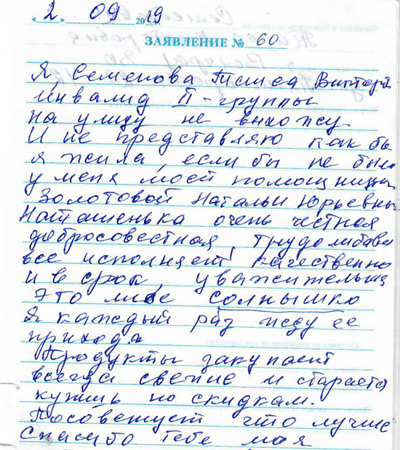 2 09 2019
ЗАЯВЛЕНИЕ № 60
Я, Семенова Таисея Виктор
инвалид II - группы
на улицу не выхожу.
И не представляю как бы
я жила если бы не был
у меня моей помощницы
Золотовой Натальи Юрьевны
Наташенька очень честная
добросовестная, трудолюбива
все исполняет качественно
и в срок уважительна
Это мое солнышко
Я каждый раз жду ее
прихода
Продукты закупает
всегда свежие и старается
купить по скидкам.
Посоветует что лучше
Спасибо тебе моя